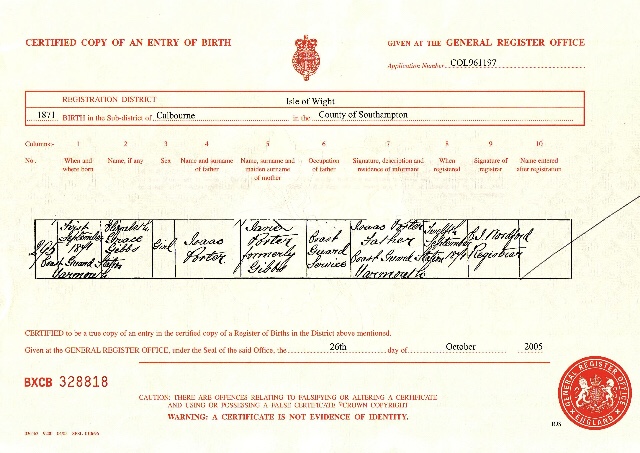 CERTIFIED COPY OF AN ENTRY OF BIRTH
GIVEN AT THE GENERAL REGISTER OFFICE
Application Number COL961197
REGISTRATION DISTRICT Isle of Wight
1871 BIRTH in the Sub-district of Calbourne in the County of Southampton
Columns:- 1 2 3 4 5 6 7 8 9 10
No. When and where born Name, if any Sex Name and surname of father Name, surname and maiden surname of mother Occupation of father Signature, description and residence of informant When registered Signature of registrar Name entered after registration
First September 1871 Coast Guard Station Yarmouth
Elizabeth Grace Gibbs
Girl
Isaac Porter
Jane Porter formerly Gibbs
Coast Guard Service
Isaac Porter Father Coast Guard Station Yarmouth
Twelfth September 1871
Registrar
CERTIFIED to be a true copy of an entry in the certified copy of a Register of Births in the District above mentioned.
Given at the GENERAL REGISTER OFFICE, under the Seal of the said Office, the 26th day of October 2005
BXCB 328818
CAUTION: THERE ARE OFFENCES RELATING TO FALSIFYING OR ALTERING A CERTIFICATE
AND USING OR POSSESSING A FALSE CERTIFICATE ©CROWN COPYRIGHT
WARNING: A CERTIFICATE IS NOT EVIDENCE OF IDENTITY.
GENERAL REGISTER OFFICE
ENGLAND